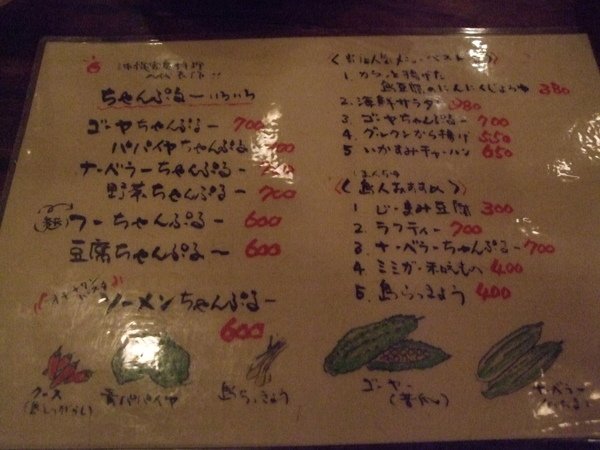 沖縄家庭料理
ちゃんぷるーいろいろ
ゴーヤちゃんぷるー 700
パパイヤちゃんぷるー 700
ナーベラーちゃんぷるー 700
野菜ちゃんぷるー 700
フーちゃんぷるー 600
豆腐ちゃんぷるー 600
ソーメンちゃんぷるー
600
メニューベスト5
1. カラッと揚げた
島豆腐のにんにくじょうゆ 380
2. 海鮮サラダ 980
3. ゴーヤちゃんぷるー 700
4. グルクンから揚げ 550
5 いかすみチャーハン 650
島人おすすめ
1 じーまみ豆腐 300
2. ラフティー 700
3 ナーベラーちゃんぷるー 700
4 ミミガー 400
5. 島らっきょう 400
青パパイヤ
島らっきょう
ゴーヤー
ナーベラー